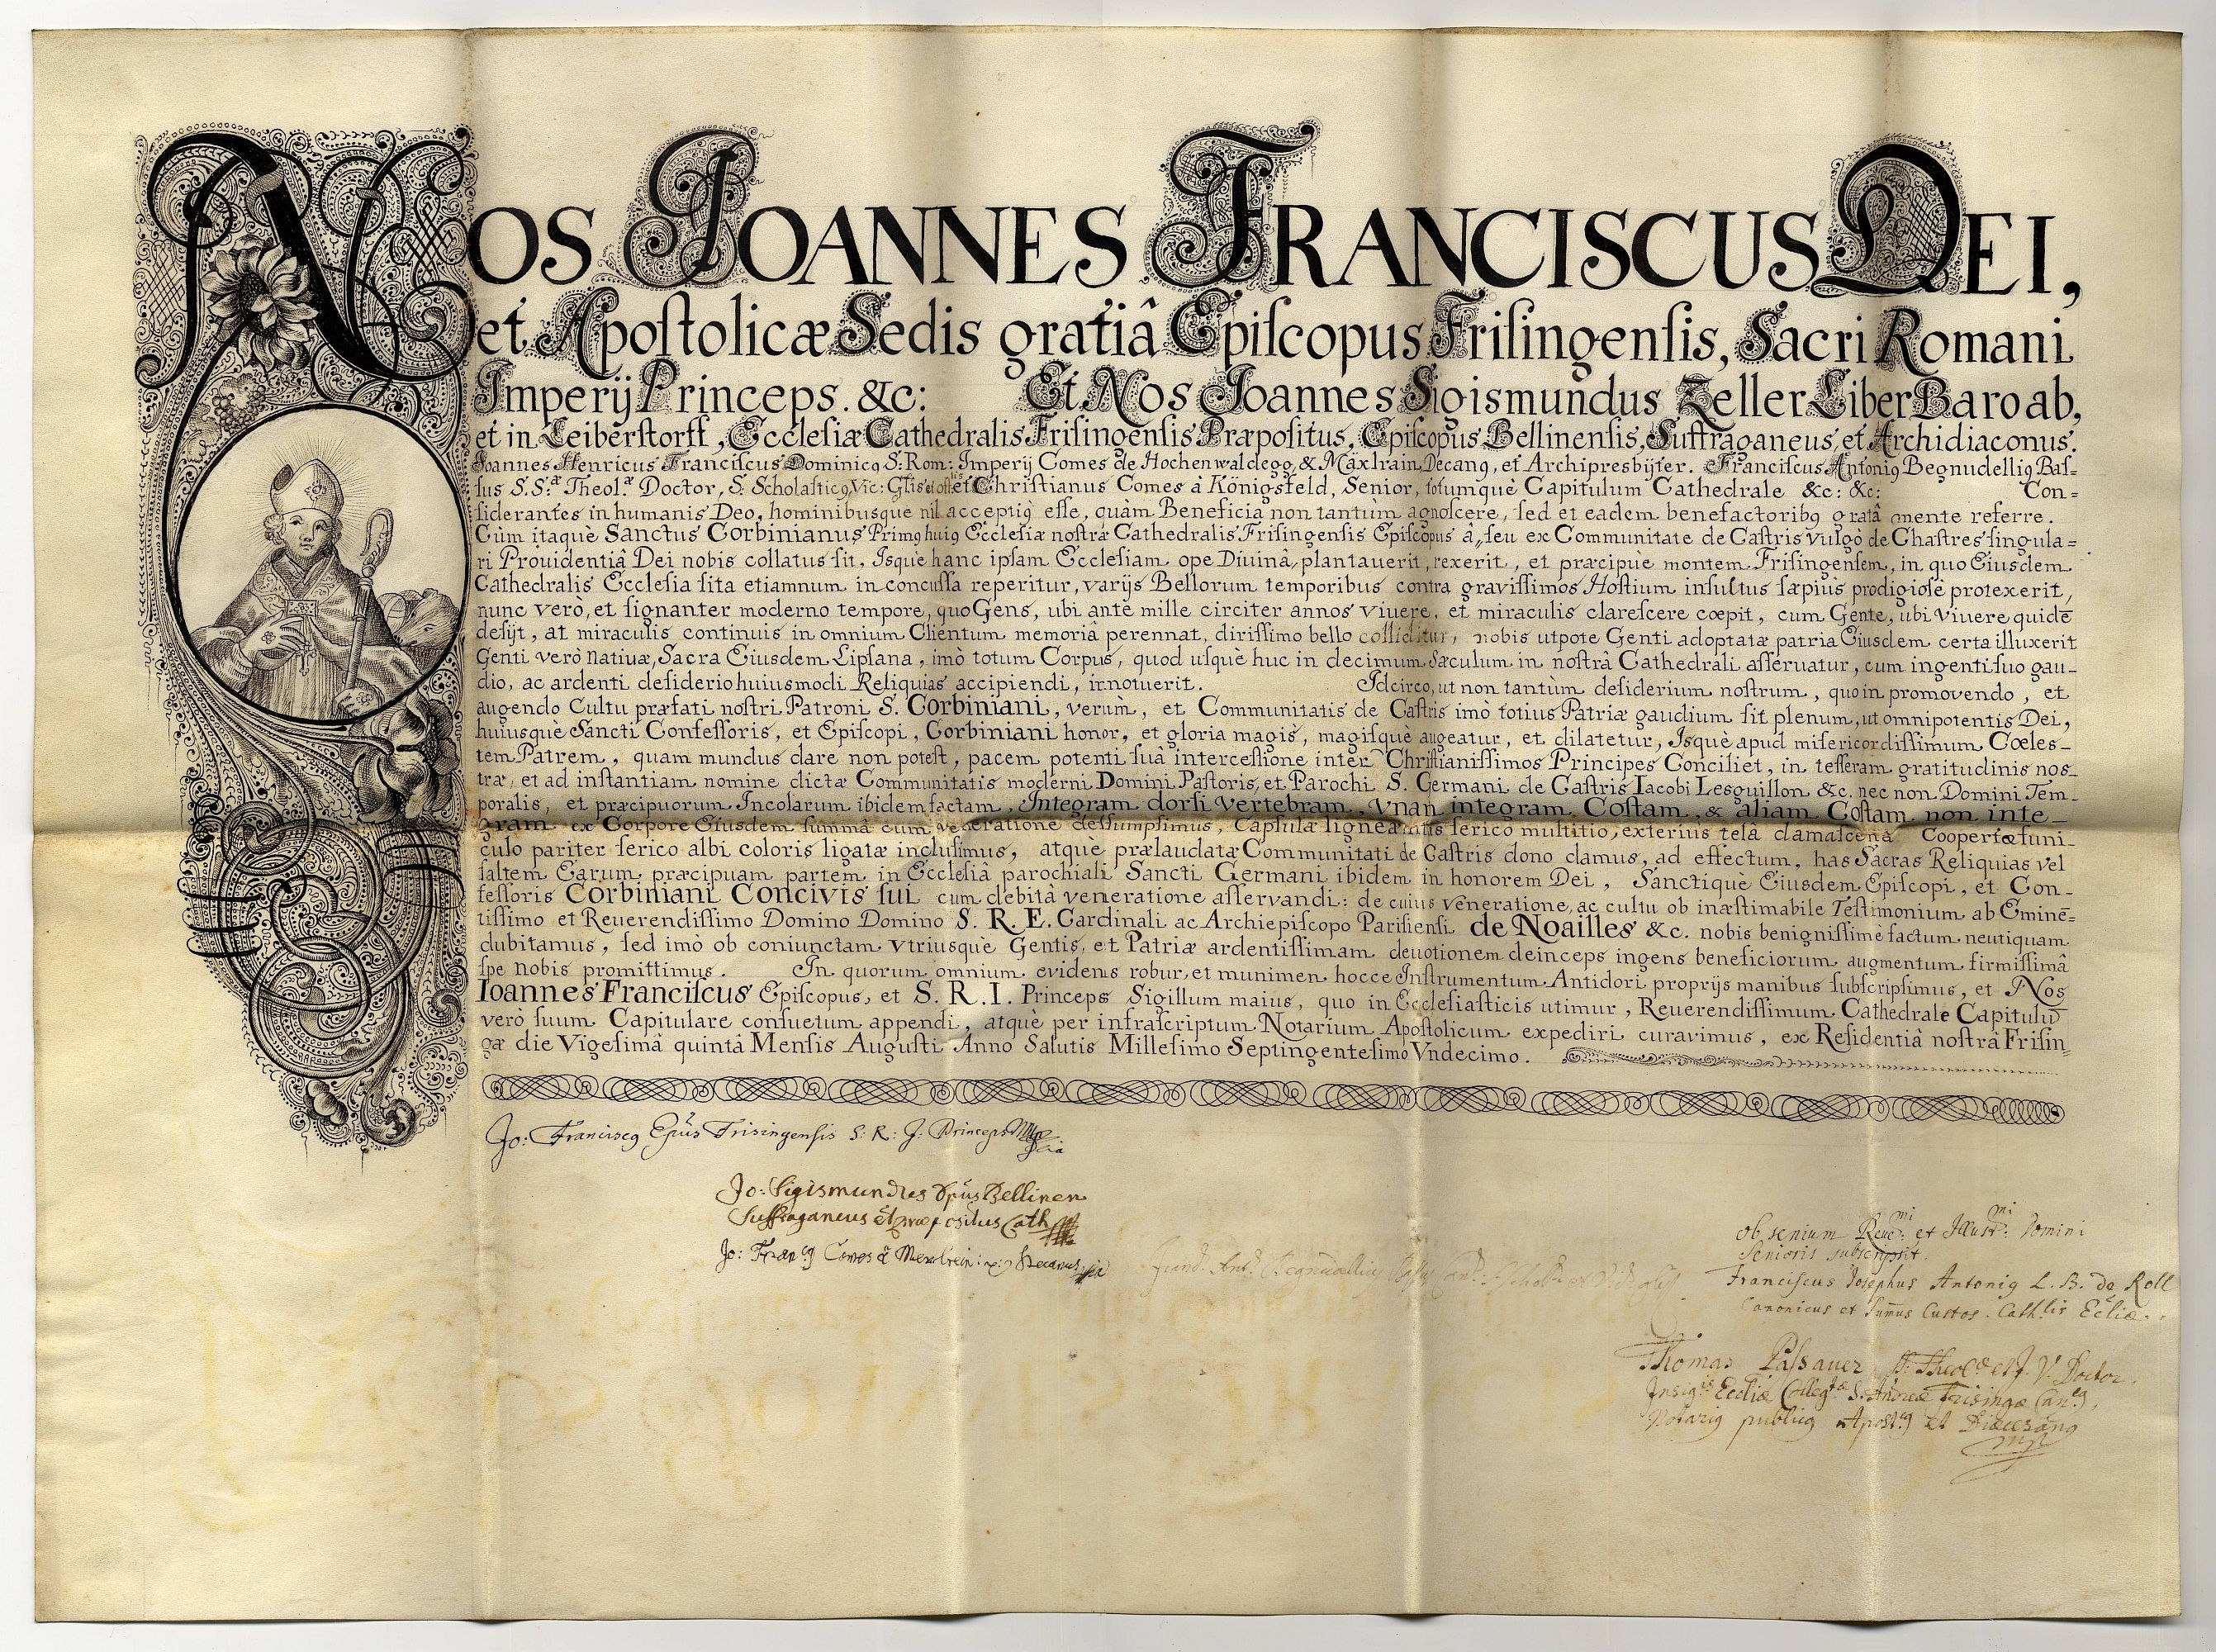 NOS JOANNES FRANCISCUS DEI,
et Apoſtolicæ Sedis gratiâ Epiſcopus Friſingenſis, Sacri Romani
Imperij Princeps. &c: Et Nos Joannes Sigismundus Zeller Liber Baro ab,
et in Leiberſtorff, Eccleſiæ Cathedralis Friſingenſis Præpoſitus, Epiſcopus Bellinenſis, Suffraganeus, et Archidiaconus.
Joannes Henricus Franciſcus Dominicꝰ S: Rom: Imperij Comes de Hochenwaldegg, & Mäxlrain Decanꝰ, et Archipresbyter. Franciſcus Antoniꝰ Begnudelliꝰ Baſ-
ſus S.S.æ Theol.æ Doctor, S. Scholaſticꝰ, Vic: Glis et Chriſtianus Comes à Königsfeld, Senior, totumquè Capitulum Cathedrale &c: &c: Con=
ſiderantes in humanis Deo, hominibusque nil acceptiꝰ eſſe, quàm Beneficia non tantum agnoſcere, ſed et eadem benefactoribꝰ gratâ mente referre.
Cùm itaquè Sanctus Corbinianus Primꝰ huiꝰ Eccleſiæ noſtræ Cathedralis Friſingenſis Epiſcopus â, ſeu ex Communitate de Caſtris vulgò de Chaſtres ſingula=
ri Prouidentiâ Dei nobis collatus ſit, Isque hanc ipſam Eccleſiam, ope Diuinâ, plantauerit, rexerit, et præcipuè montem Friſingenſem, in quo Eiusdem
Cathedralis Eccleſia ſita etiamnum inconcuſſa reperitur, varijs Bellorum temporibus contra graviſſimos Hoſtium inſultus ſæpiùs prodigioſè protexerit,
nunc verò, et ſignanter moderno tempore, quo Gens, ubi antè mille circiter annos viuere, et miraculis clareſcere cœpit, cum Gente, ubi viuere quidē
deſijt, at miraculis continuis in omnium Clientum memoriâ perennat, diriſſimo bello colliditur, nobis utpote Genti adoptatæ patria Eiusdem certa illuxerit
Genti verò natiuæ, Sacra Eiusdem Lipſana, imò totum Corpus, quod uſquè huc in decimum Sæculum in noſtrâ Cathedrali aſſeruatur, cum ingenti ſuo gau-
dio, ac ardenti deſiderio huiusmodi Reliquias accipiendi, innotuerit. Idcirco, ut non tantùm deſiderium noſtrum, quo in promovendo, et
augendo Cultu præfati noſtri Patroni S. Corbiniani, verum, et Communitatis de Caſtris imò totius Patriæ gaudium ſit plenum, ut omnipotentis Dei,
huiusquè Sancti Confeſſoris, et Epiſcopi, Corbiniani honor, et gloria magis, magiſquè augeatur, et dilatetur, Isquè apud miſericordiſſimum Cœleſ-
tem Patrem, quam mundus dare non poteſt, pacem potenti ſuâ interceſſione inter Chriſtianiſſimos Principes Conciliet, in teſſeram gratitudinis noſ-
træ, et ad inſtantiam nomine dictæ Communitatis moderni Domini Paſtoris, et Parochi S. Germani de Caſtris Iacobi Lesguillon &c. nec non Domini Tem-
poralis, et præcipuorum Incolarum ibidem factam, Integram dorſi vertebram, Vnam integram Coſtam, & aliam Coſtam non inte-
gram ex Corpore Eiusdem ſummâ cum veneratione deſſumpſimus, Capſulæ ligneæ intùs ſerico multitio, exteriùs telâ damaſcenâ Coopertæ funi-
culo pariter ſerico albi coloris ligatæ incluſimus, atque prælaudatæ Communitati de Caſtris dono damus, ad effectum, has Sacras Reliquias vel
ſaltem Earum præcipuam partem in Eccleſiâ parochiali Sancti Germani ibidem in honorem Dei, Sanctiquè Eiusdem Epiſcopi, et Con-
feſſoris Corbiniani Concivis ſui cum debitâ veneratione aſſervandi: de cuius veneratione, ac cultu ob inæſtimabile Teſtimonium ab Eminē=
tiſſimo et Reuerendiſſimo Domino Domino S. R. E. Cardinali ac Archiepiſcopo Pariſienſi de Noailles &c. nobis benigniſſimè factum neutiquam
dubitamus, ſed imò ob coniunctam vtriusquè Gentis, et Patriæ ardentiſſimam deuotionem deinceps ingens beneficiorum augmentum firmiſſimâ
ſpe nobis promittimus. In quorum omnium evidens robur, et munimen hocce Inſtrumentum Antidori proprijs manibus ſubſcripſimus, et Nos
Ioannes Franciſcus Epiſcopus, et S. R. I. Princeps Sigillum maius, quo in Eccleſiaſticis utimur, Reuerendiſſimum Cathedrale Capitulū
verò ſuum Capitulare conſuetum appendi, atquè per infraſcriptum Notarium Apoſtolicum expediri curavimus, ex Reſidentiâ noſtrâ Friſin-
gæ die Vigeſimâ quintâ Mensis Auguſti Anno Salutis Milleſimo Septingenteſimo Vndecimo.
Jo: Franciscꝰ Epũs Frisingensis S: R: J: Princeps
Jo: Sigismundus Epũs Bellinen
Suffraganeus et præpositus Cath
Jo: Francꝰ Comes à Mexlrein Decanus
ob senium Revmi: et Illustmi: Domini
Senioris subscripsit.
Franciscus Josephus Antoniꝰ L. B. de Roll
Canonicus et sumus Custos Cathlis Eccliæ.
Thomas Passauer SS: Theol: et J. V. Doctor.
Insigis Eccliæ Collegtæ S. Andreæ Frisingæ Canꝰ,
Notariꝰ publicꝰ Apostꝰ et Diœcesanꝰ